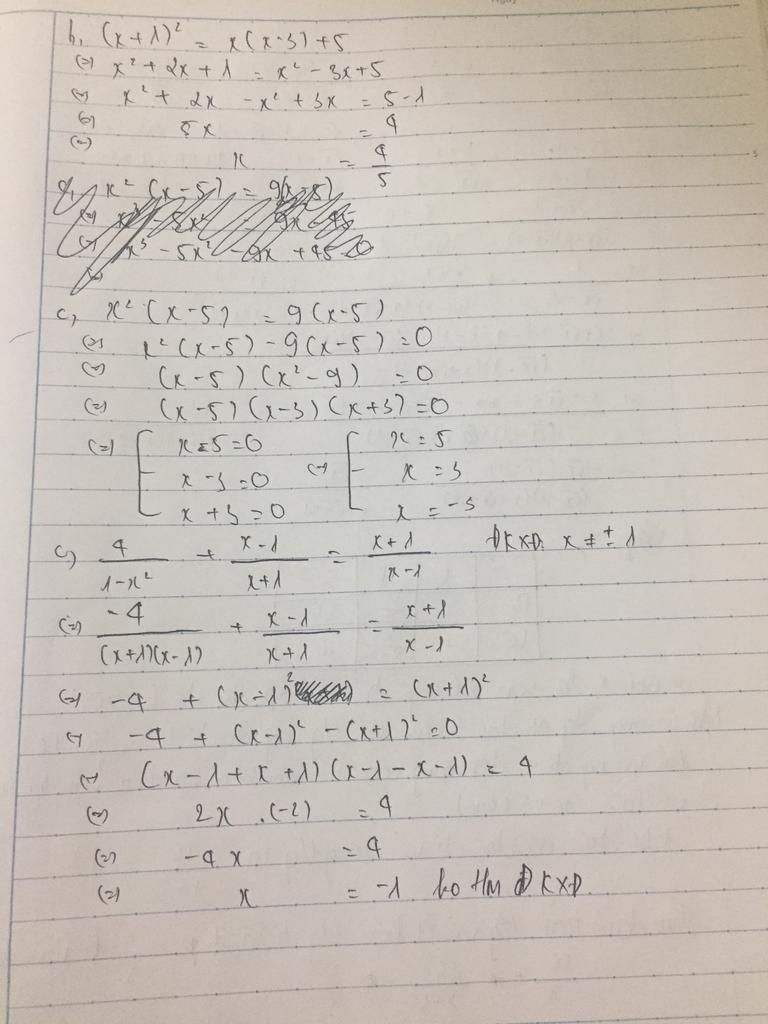 b, (x+1)² = x(x-3)+5
(=) x² + 2x + 1 = x² - 3x + 5
(=) x² + 2x - x² + 3x = 5-1
(=) 5x = 4
(=) x = 4/5
x² (x-5) = 9(x-5)
(=) x³ - 5x² = 9x - 45
(=) x³ - 5x² - 9x + 45 = 0
c, x² (x-5) = 9(x-5)
(=) x² (x-5) - 9(x-5) = 0
(=) (x-5) (x²-9) = 0
(=) (x-5) (x-3) (x+3) = 0
(=) [ x-5=0 (=) [ x=5
x-3=0 x=3
x+3=0 x=-3
c, 4/(1-x²) + (x-1)/(x+1) = (x+1)/(x-1) ĐKXĐ: x ≠ ± 1
(=) -4/((x+1)(x-1)) + (x-1)/(x+1) = (x+1)/(x-1)
(=) -4 + (x-1)² = (x+1)²
(=) -4 + (x-1)² - (x+1)² = 0
(=) (x-1+x+1)(x-1-x-1) = 4
(=) 2x .(-2) = 4
(=) -4x = 4
(=) x = -1 ko tm ĐKXĐ